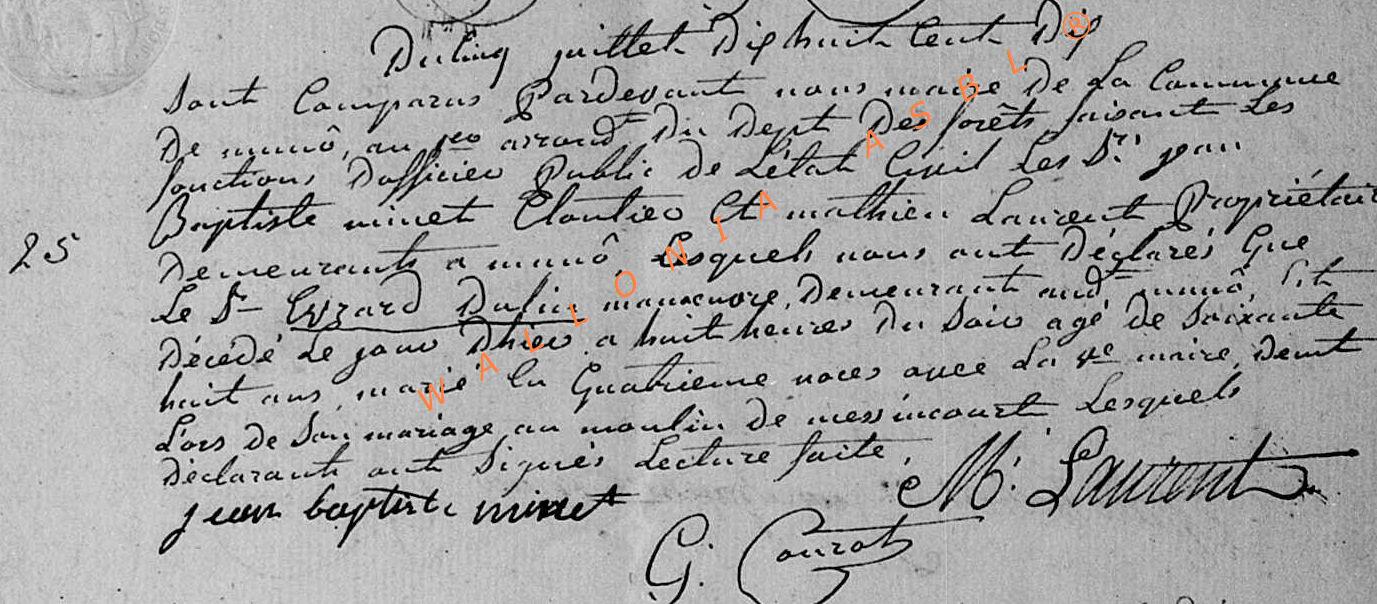 Du cinq juillet Dix huit Cent Dix
Sont Comparus Pardevant nous maire De La Commune
De munô, au 1er arrondt Du Dept Des forêts faisant Les
fonctions D'officier Public de L'état Civil Les Srs jean
Baptiste minet Cloutier Et mathieu Laurent Propriétair
Demeurants a munô Lesquels nous ont Déclarés Que
25
Le Sr Evrard Dufin manœuvre, Demeurant audt munô, Est
Décédé Le jour D'hier a huit heures Du Soir agé de Soixante
huit ans, marié En Quatrieme noces avec La ve maire, Demt
Lors de Son mariage au moulin de messincourt Lesquels
Déclarants ont Signés Lecture faite,
jean baptiste minet
M: Laurent
G: Courot
WALLONIA ASBL ®